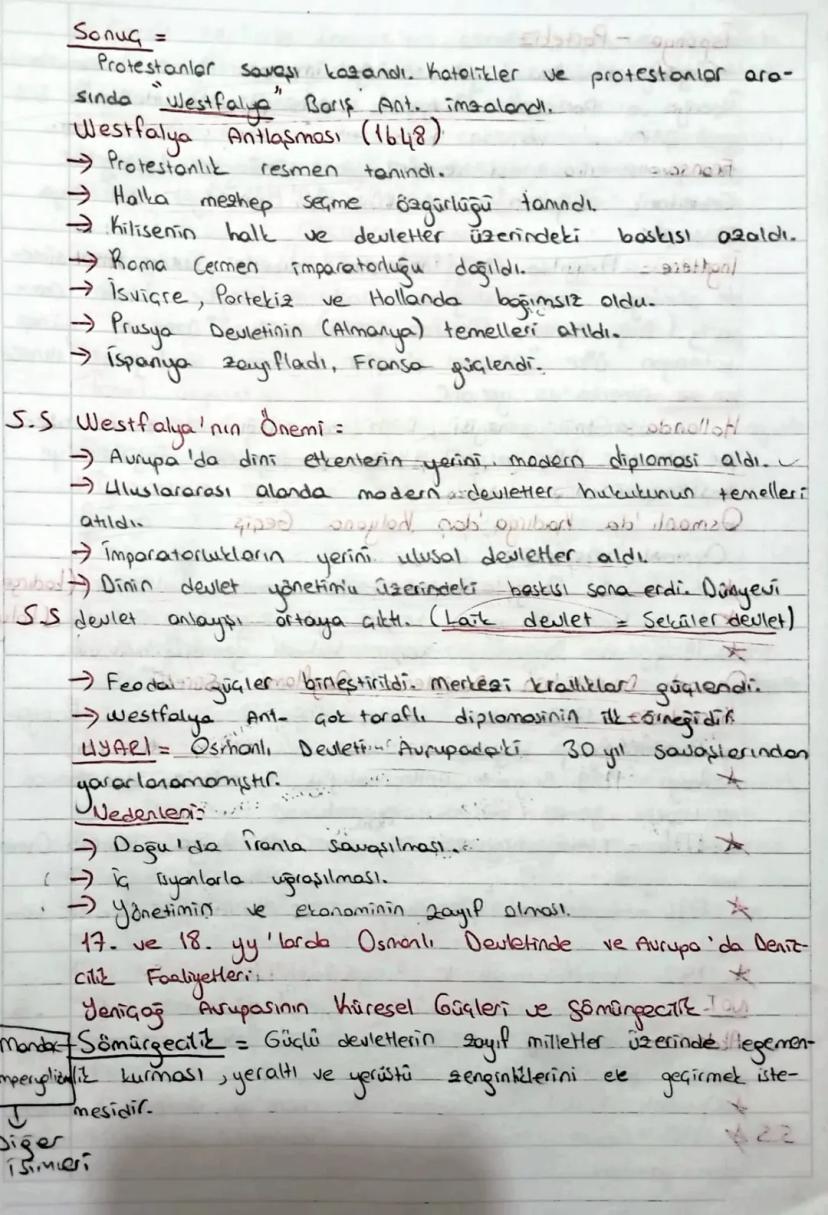 Sonuç =
Protestanlar savaşı kazandı. Katolikler ve protestanlar ara-
sında "Westfalya" Barış Ant. imzalandı.
Westfalya Antlaşması (1648)
→ Protestanlık resmen tanındı.
→ Halka mezhep seçme özgürlüğü tanındı.
→ Kilisenin halk ve devletler üzerindeki baskısı azaldı.
→ Roma Cermen imparatorluğu dağıldı.
→ İsviçre, Portekiz ve Hollanda bağımsız oldu.
→ Prusya Devletinin (Almanya) temelleri atıldı.
→ İspanya zayıfladı, Fransa güçlendi.
S.S Westfalya'nın Önemi =
→ Avrupa'da dini etkenlerin yerini modern diplomasi aldı.
→ Uluslararası alanda modern devletler hukukunun temelleri
atıldı.
→ İmparatorlukların yerini ulusal devletler aldı.
→ Dinin devlet yönetimi üzerindeki baskısı sona erdi. Dünyevi
S.S devlet anlayışı ortaya çıktı. (Laik devlet = Seküler devlet)
→ Feodal güçler birleştirildi. Merkezi krallıklar güçlendi.
→ Westfalya Ant. çok taraflı diplomasinin ilk örneğidir.
UYARI = Osmanlı Devleti Avrupadaki 30 yıl savaşlarından
yararlanamamıştır.
Nedenleri:
→ Doğu'da İranla savaşılması.
→ İç isyanlarla uğraşılması.
→ Yönetimin ve ekonominin zayıf olması.
17. ve 18. yy'larda Osmanlı Devletinde ve Avrupa'da Deniz-
cilik Faaliyetleri
Yeniçağ Avrupasının Küresel Güçleri ve Sömürgecilik
Sömürgecilik = Güçlü devletlerin zayıf milletler üzerinde egemen-
lik kurması, yeraltı ve yerüstü zenginliklerini ele geçirmek iste-
mesidir.
Diğer
isimleri